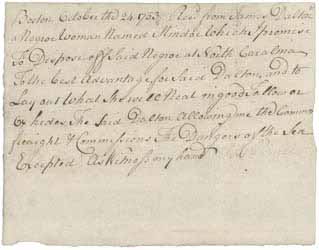 Boston October the 24 1753 Recd from James Dalton
a Negroe Woman Named Mindoe Which I promese
To Despose off Said Negroe at South Carolina
To the best Advantage for Said Dalton, and to
Lay out What She will Neat in good
hides. the Said Dalton Allowing me the Common
freaight & Commissions The Dangers of the Sea
Excepted As Witness my hand